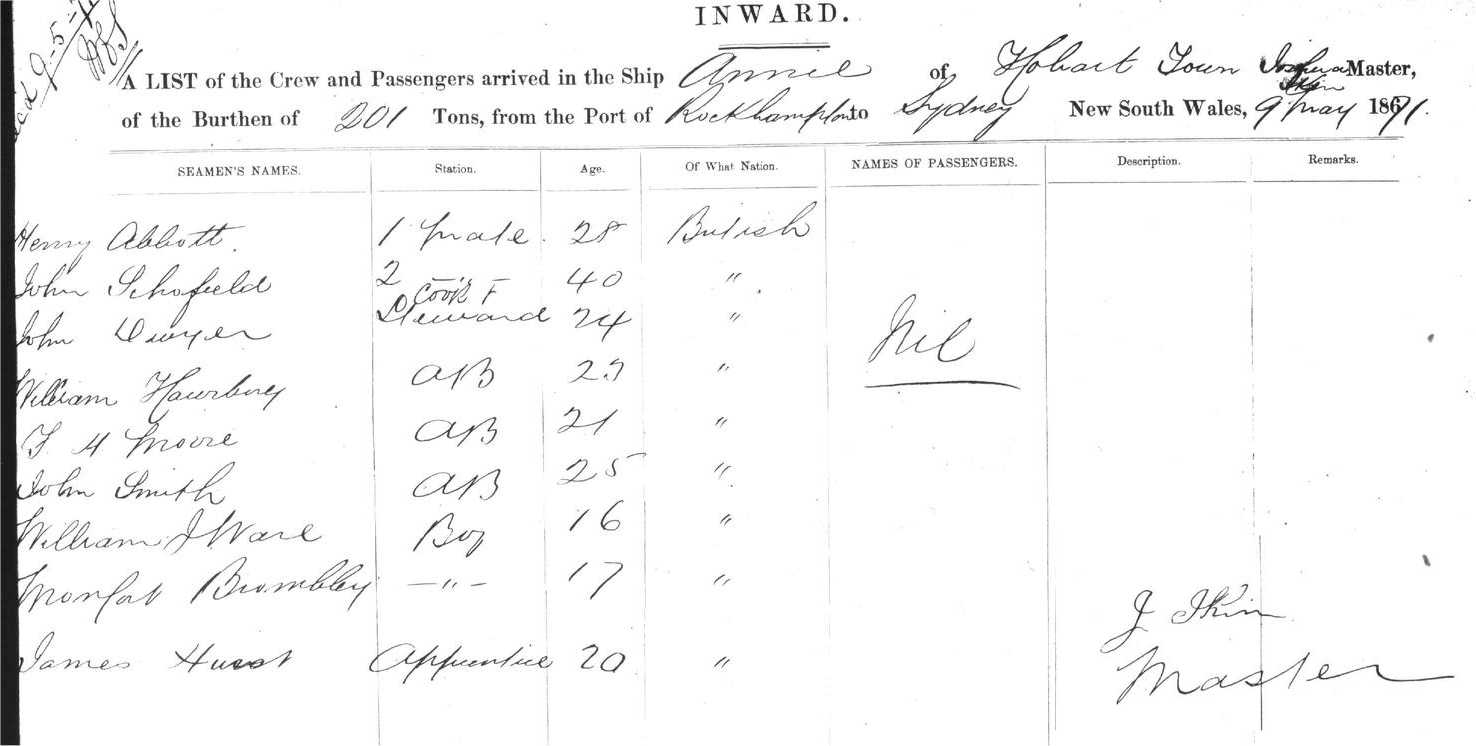 INWARD.
9-5-71
A LIST of the Crew and Passengers arrived in the Ship Annie of Hobart Town Joshua Ikin Master,
of the Burthen of 201 Tons, from the Port of Rockhampton to Sydney New South Wales, 9 May 1871.
SEAMEN'S NAMES. Station. Age. Of What Nation. NAMES OF PASSENGERS. Description. Remarks.
Henry Abbott. 1 Mate. 28 British
John Schofield 2 — " — 40 "
John Dwyer Cook & Steward 24 " Nil
William Hawsbury AB 23 "
T H Moore AB 21 "
John Smith AB 25 "
William J Ware Boy 16 "
Brombley — " — 17 "
James Hurst Apprentice 20 "
J Ikin
Master